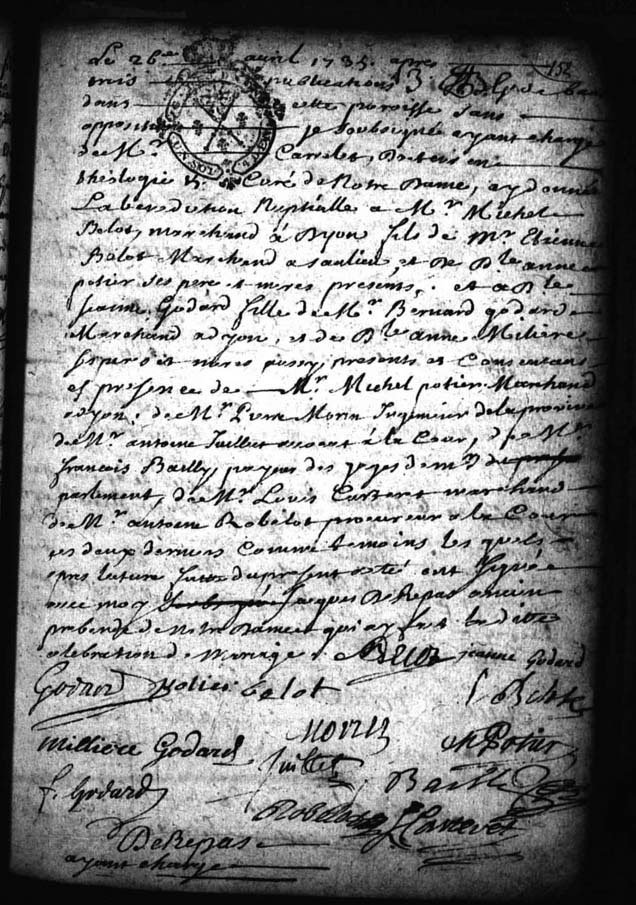 Le 26e avril 1735. apres
trois publications
dans cette paroisse sans
opposition je soubsigné ayant charge
de Mr. Carrelet, Docteur en
theologie & Curé de Notre Dame, ay donné
La benediction Nuptialle a Mr. Michel
Belot, marchand à Dijon fils de Mr Etienne
Belot Marchand a saulieu, et de Dlle anne
potier ses pere et meres presents, et a Dlle
jeanne Godard fille de Mr. Bernard godard
Marchand a dijon, et de Dlle anne Milière
ses pere et meres aussy presents et Consentans
et presence de Mr. Michel potier Marchand
a dijon, de Mr. Pierre Morin Ingenieur de la province
de Mr. antoine Juillet avocat à la Cour, de Mr
francois Bailly, payeur des gages de mrs du
parlement, de Mr. Louis marchand
de Mr. antoine Robelot procureur a la Cour
ces deux derniers Comme temoins les quels
apres lecture faitte du present acte ont signée
avec moy Jacques De Repas ancien
prebendé de Notre Dame et qui ay fait la ditte
celebration de Mariage. Belot jeanne Godard
Godard Potier Belot
Millière Godard Morin M Potier
f. Godard Juillet Bailly
Robelot
De Repas
ayant charge
158